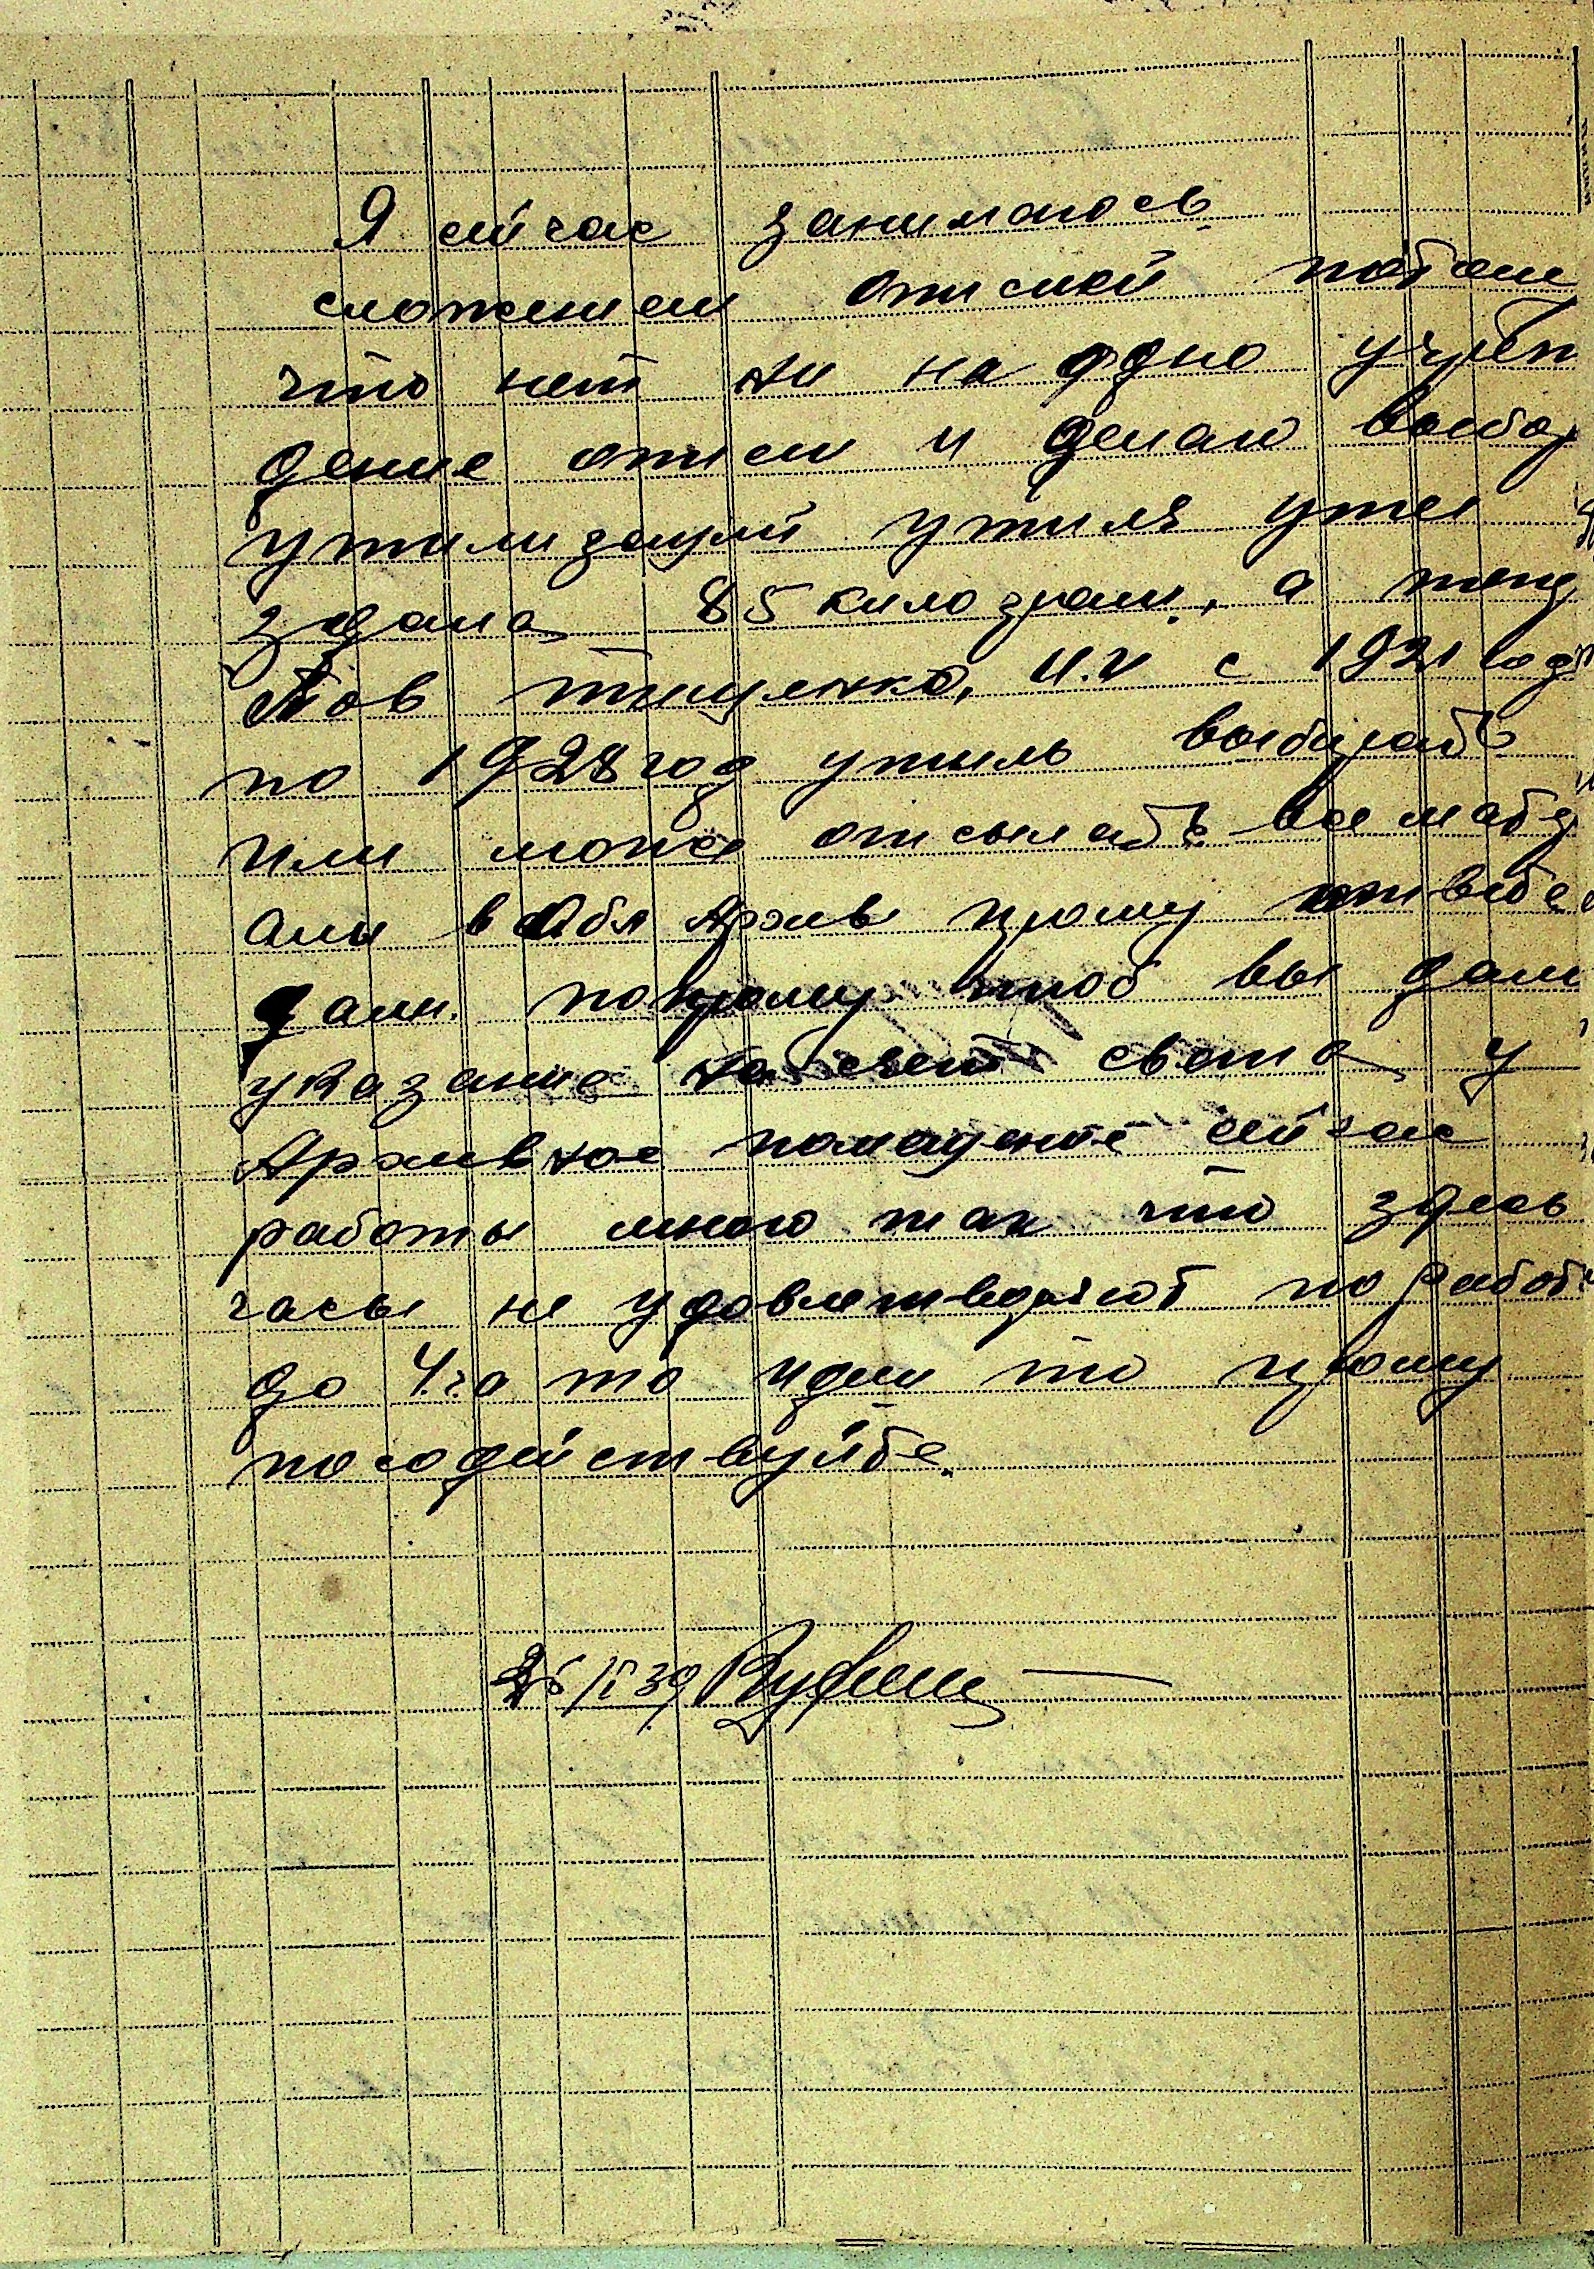 Я сейчас занимаюсь
сложением описией потом
что нет ни на одно учреж
дение описи и делаю выбор
утилизаций утиля уже
здала 85 килограм, а
Тов Тищенко, И.И с 1921 год
по 1928 год утиль выбирать
или може отсылать вам мате
алы в Обл Архив прошу
дали. попрошу чтоб вы дали
указание на счет света у
Архивное помещение сейчас
работы много так что здесь
часы не удовлетворяют по работ
до 4.го то идеш то прошу
посодействуйте.
39